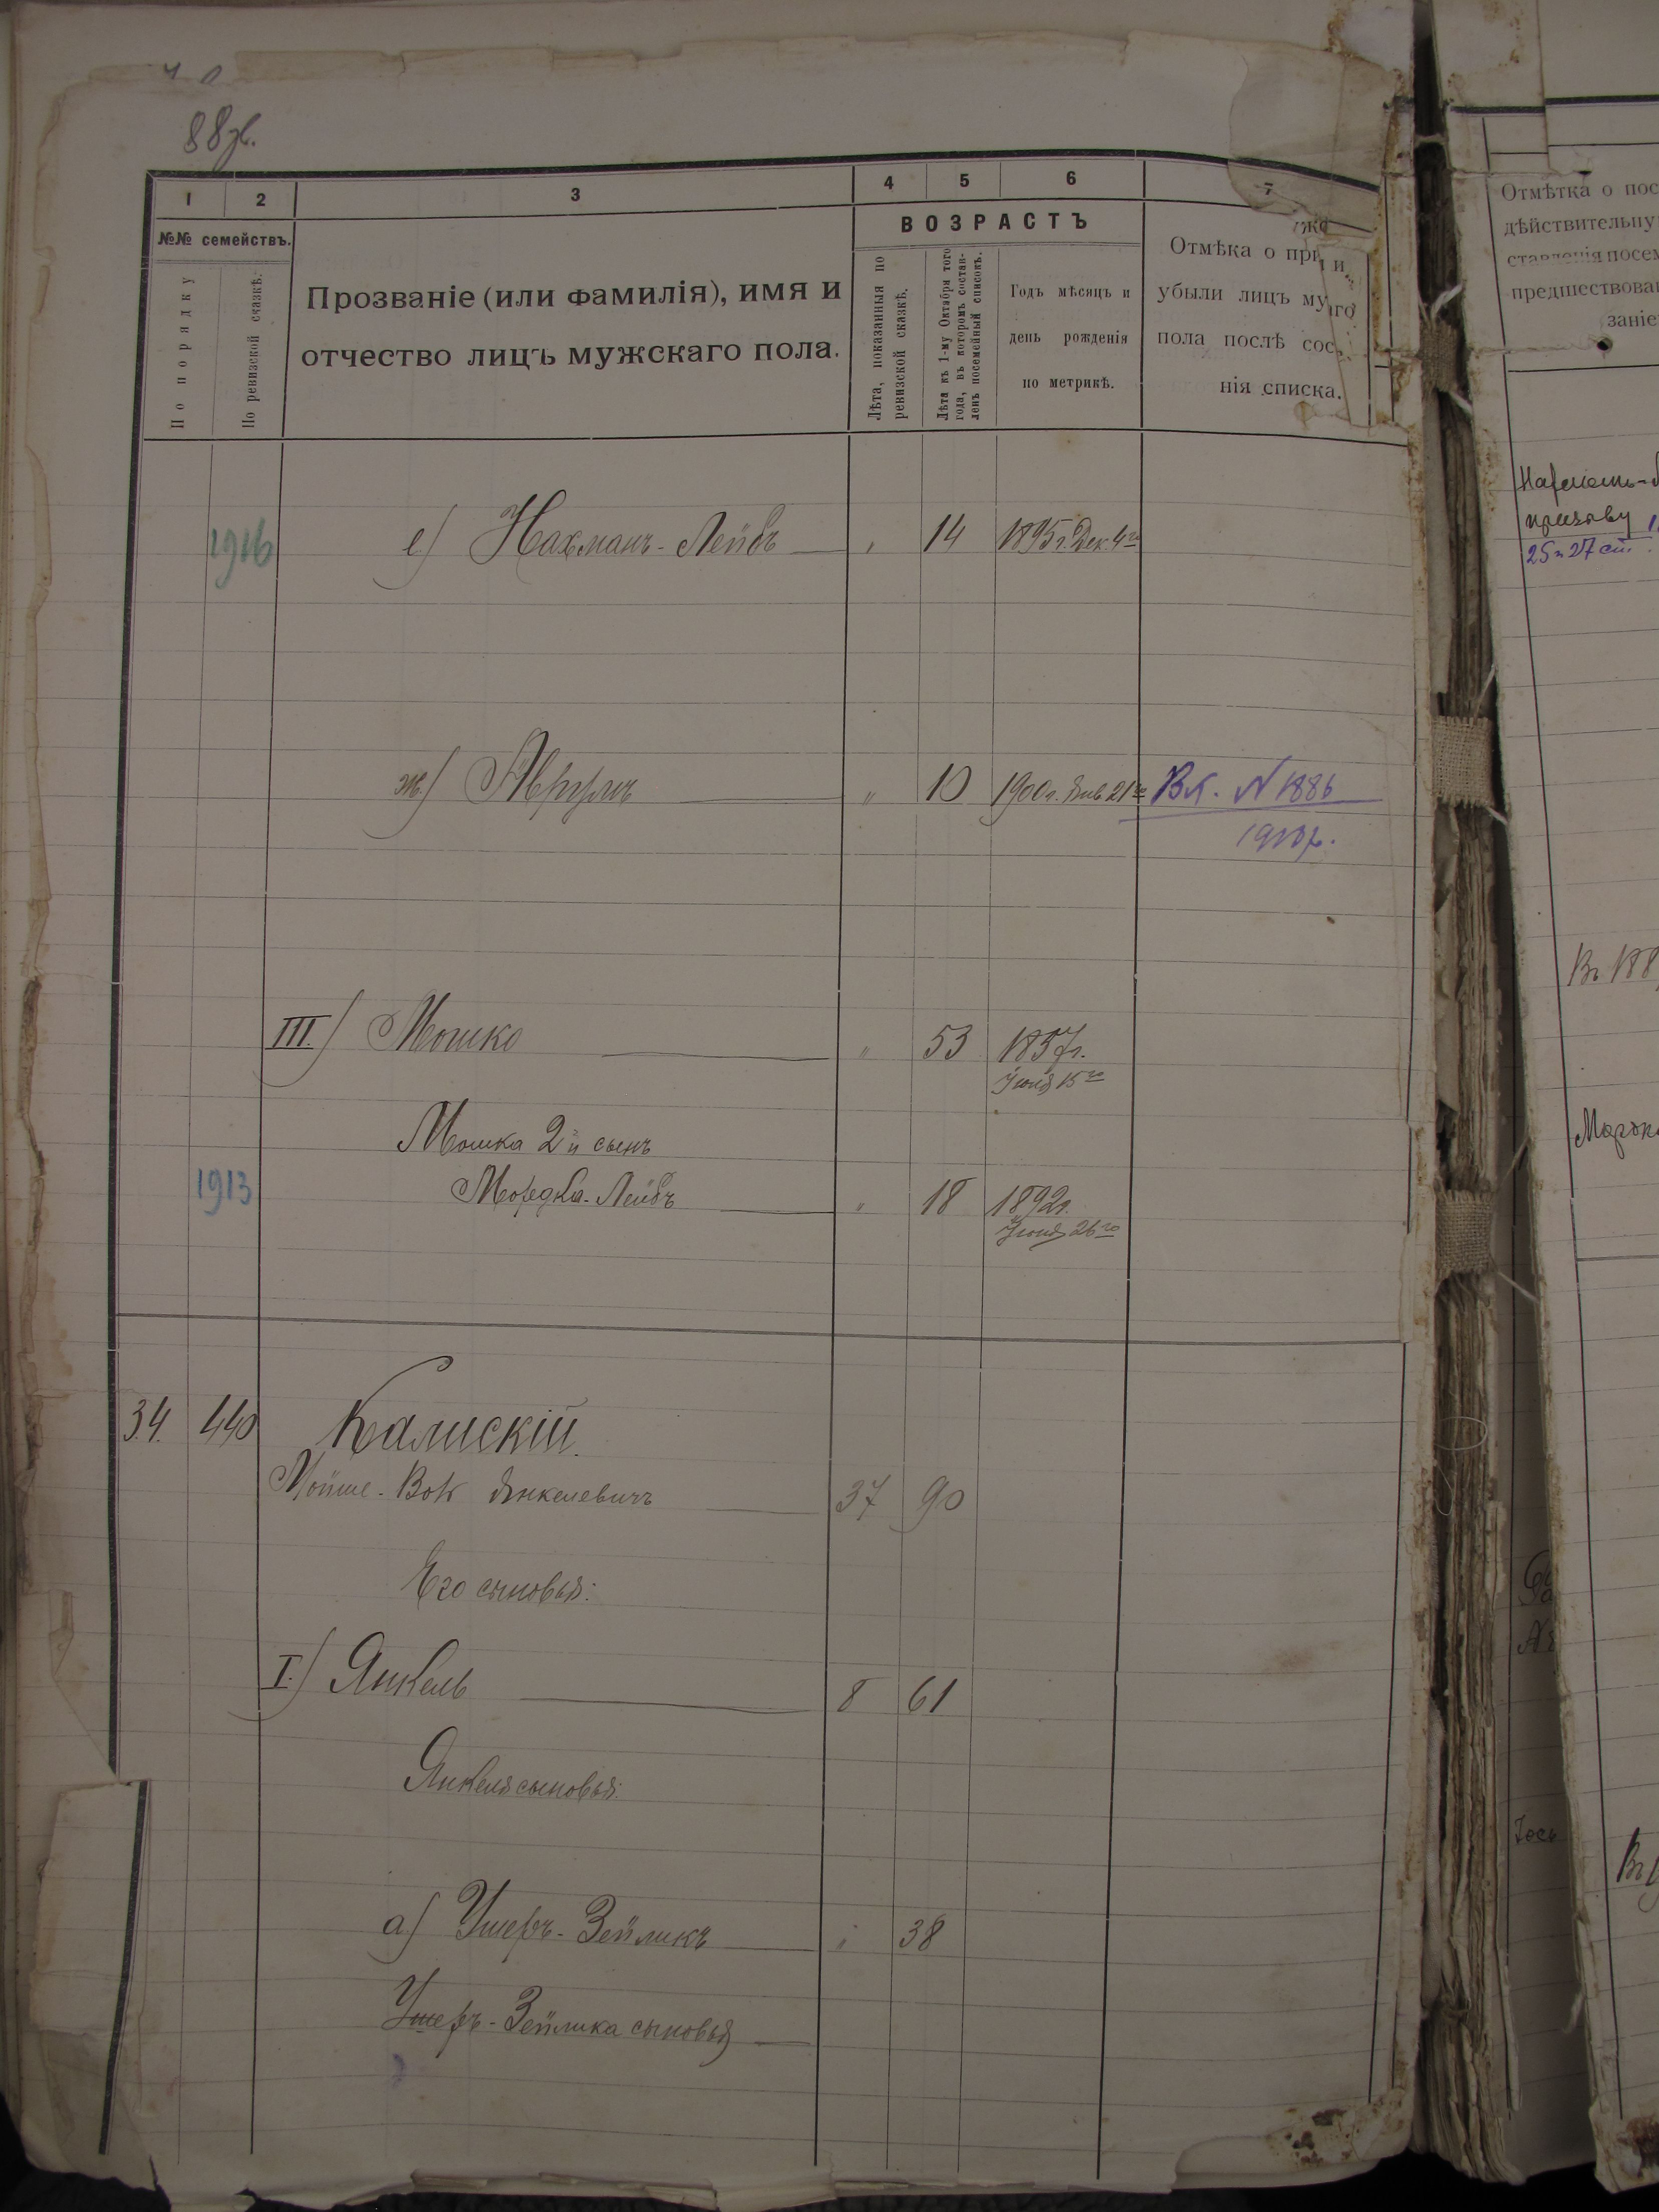 88 об.
1 2 3 4 5 6 7
№№ семействъ.
По порядку
По ревизской сказкѣ.
Прозваніе (или фамилія), имя и
отчество лицъ мужскаго пола.
ВОЗРАСТЪ
Лѣта, показанныя по
ревизской сказкѣ.
Лѣта къ 1-му Октября того
года, въ которомъ состав-
ленъ посемейный списокъ.
Годъ мѣсяцъ и
день рожденія
по метрикѣ.
Отмѣка о при
убыли лицъ му
пола послѣ сос
нія списка.
1916 е) Нахманъ-Лейбъ " 14 1895 г. Дек. 4го
ж) Аврумъ " 10 1900 г. Янв 21го Вх. N 1886
1910 г.
III.) Мошко " 53 1857 г.
Іюля 15го
Мошка 2й сынъ
1913 Мордка-Лейбъ " 18 1892 г.
Іюня 26го
34. 440 Калискій.
Мойше-Вол Янкелевичъ 37 90
Его сыновья:
I.) Янкель 8 61
Янкеля сыновья:
а) Ушеръ-Зейликъ " 38
Ушеръ-Зейлика сыновья
Отмѣтка о пос
дѣйствительну
ставленія посем
предшествова
заніе
призыву
25 и 27 ст.
Въ 188